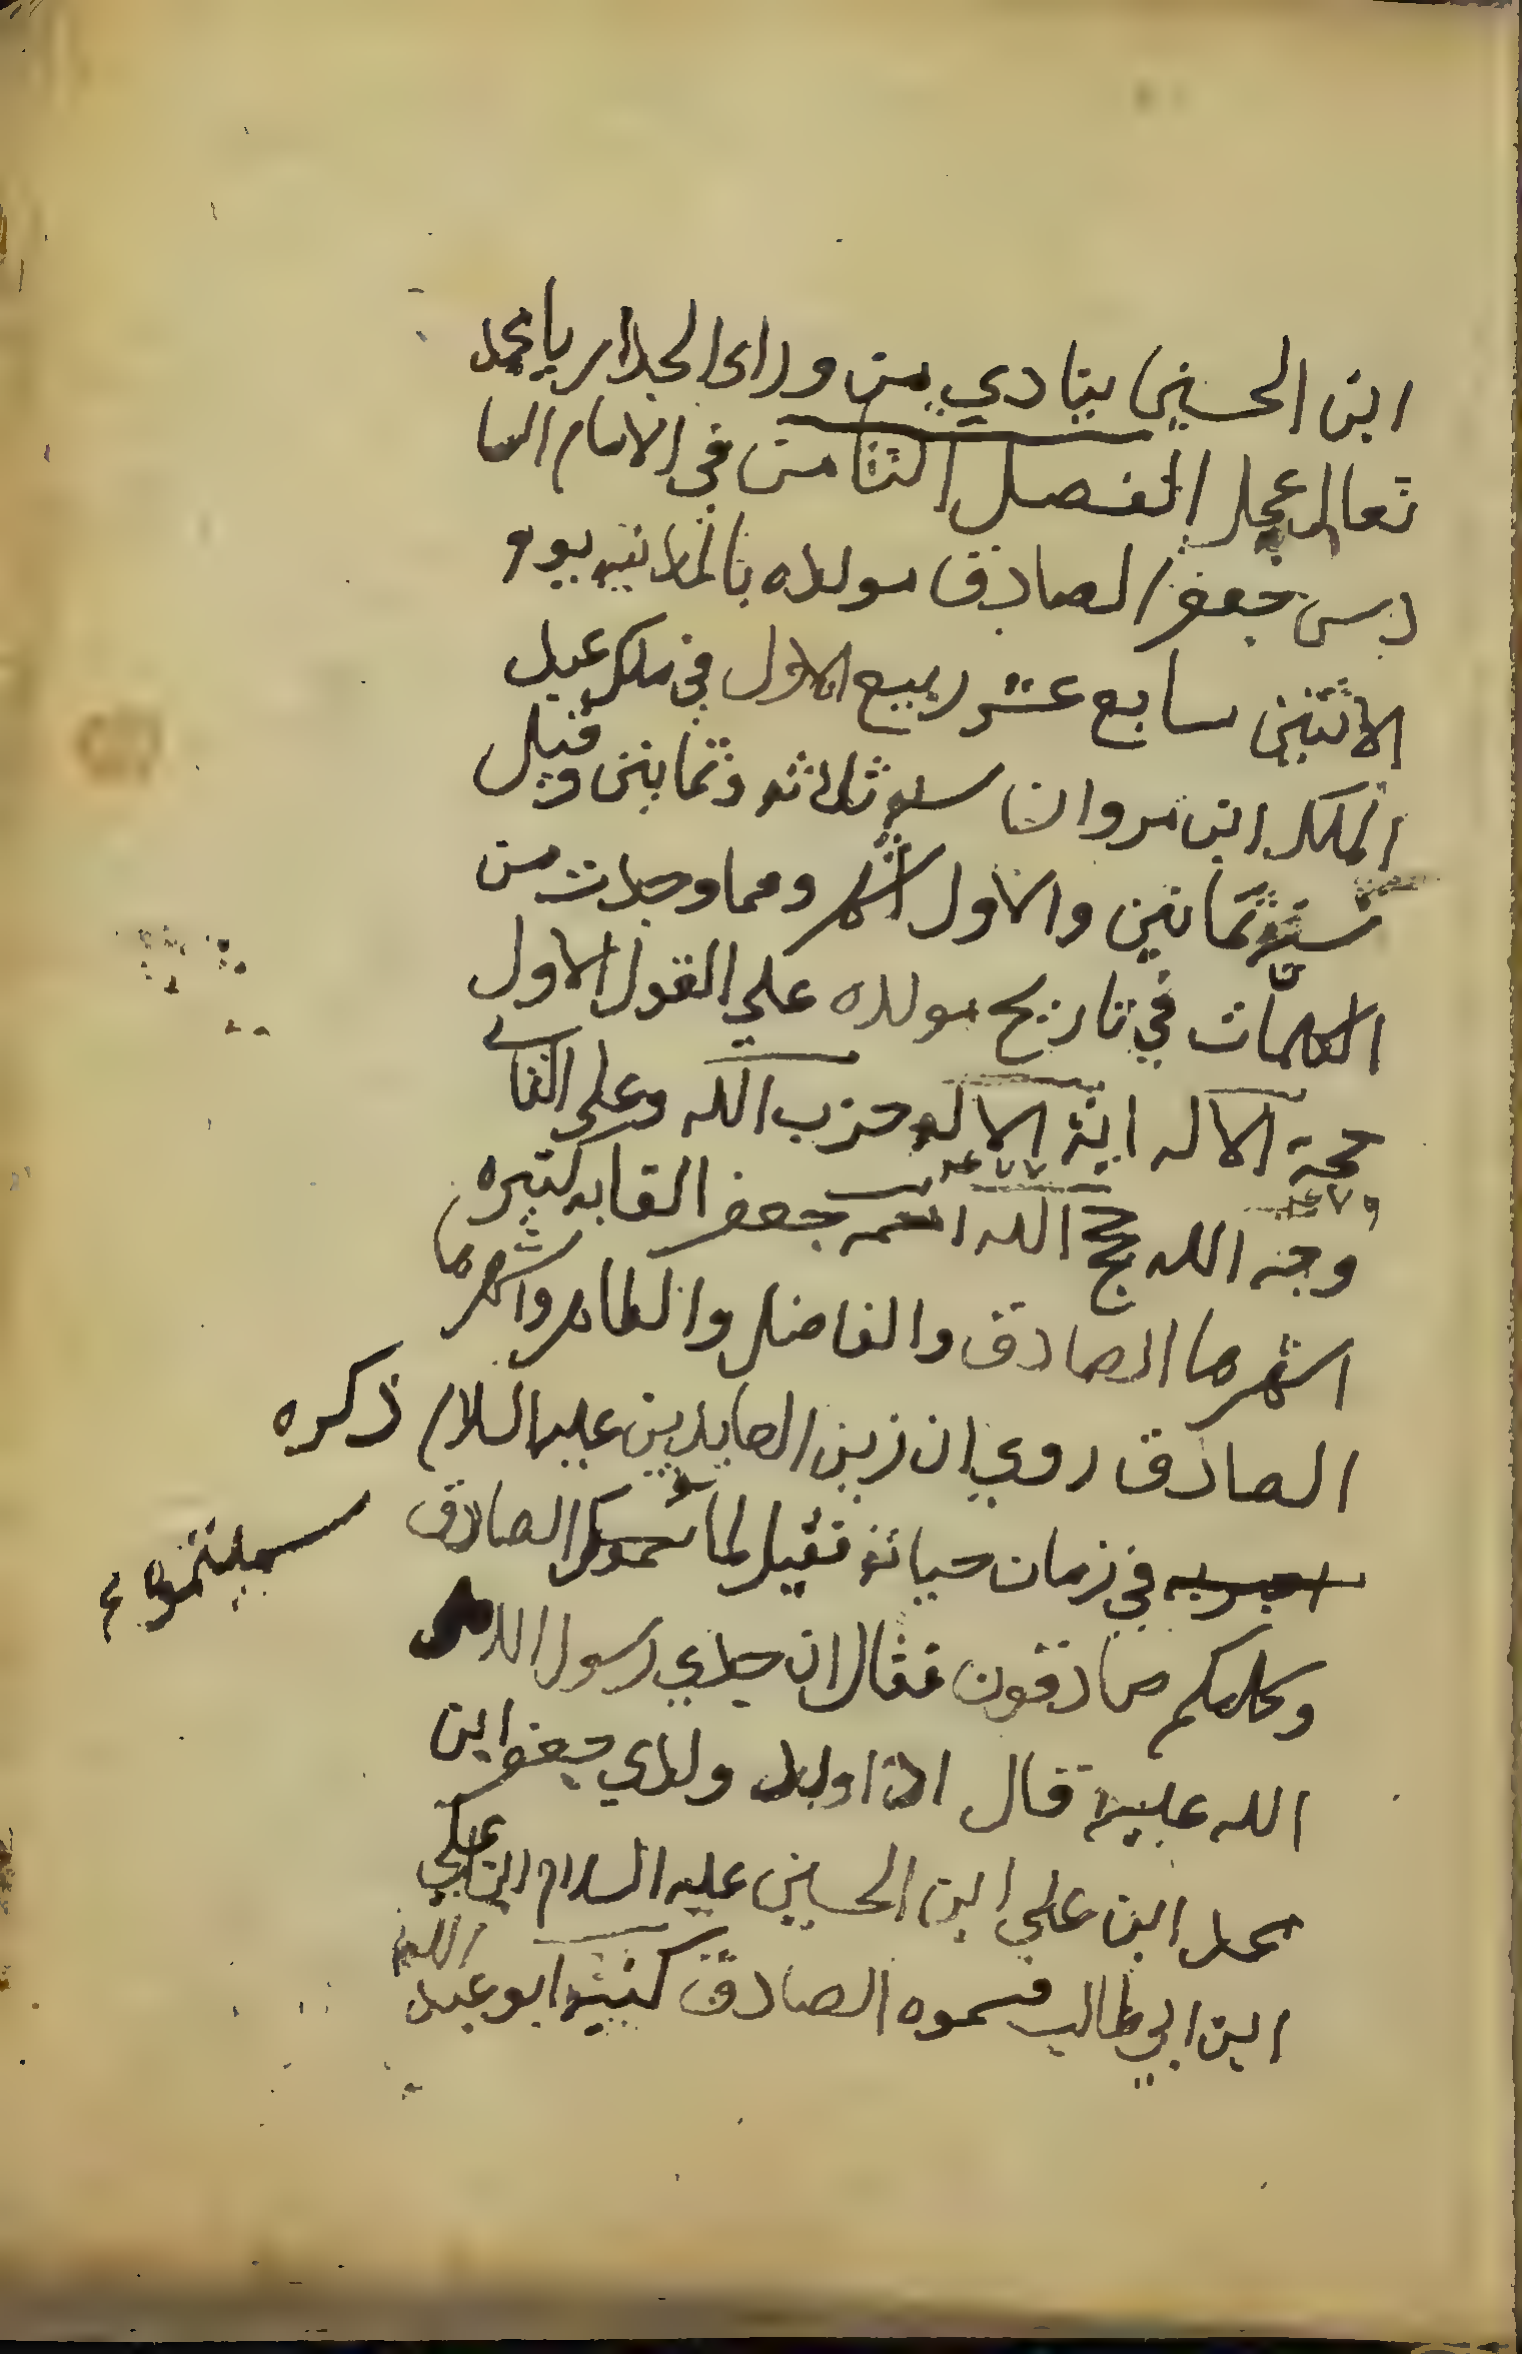 ابن الحسين ينادي من وراى الجدار يا محمد
تعالى عجل الفصل الثامن في الامام السا
دس جعفر الصادق مولده بالمدينه يوم
الاثنين سابع عشر ربيع الاول في ملك عبد
الملك ابن مروان سنه ثلاثه وثمانين وقيل
سنه ثمانين والاول اشهر ومما وجدت من
الكلمات في تاريخ مولده على القول الاول
حجة الاله اية الاله حزب الله وعلى الثاني
وجه الله حج الله اسمه جعفر القابه كثيره
اشهرها الصادق والفاضل والطاهر واشهرها
الصادق روي ان زين العابدين عليه السلام ذكره
في زمان حياته فقيل لما سموه الصادق
وكلكم صادقون فقال ان جدي رسول الله
الله عليه قال اذا ولد ولدي جعفر ابن
محمد ابن علي ابن الحسين عليه السلام ابن علي
ابن ابي طالب فسموه الصادق كنيته ابو عبد
الله